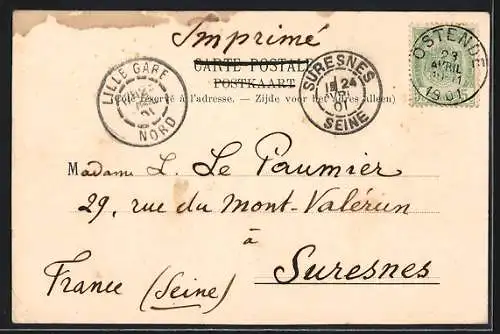 Imprimé
CARTE POSTALE
POSTKAART
Côté réservé à l'adresse. – Zijde voor het adres (alleen)
LILLE GARE
NORD
SURESNES
24
01
SEINE
OSTENDE
23
AVRIL
1901
Madame L. Le Paumier
29, rue du Mont-Valérien
à
Suresnes
France (Seine)